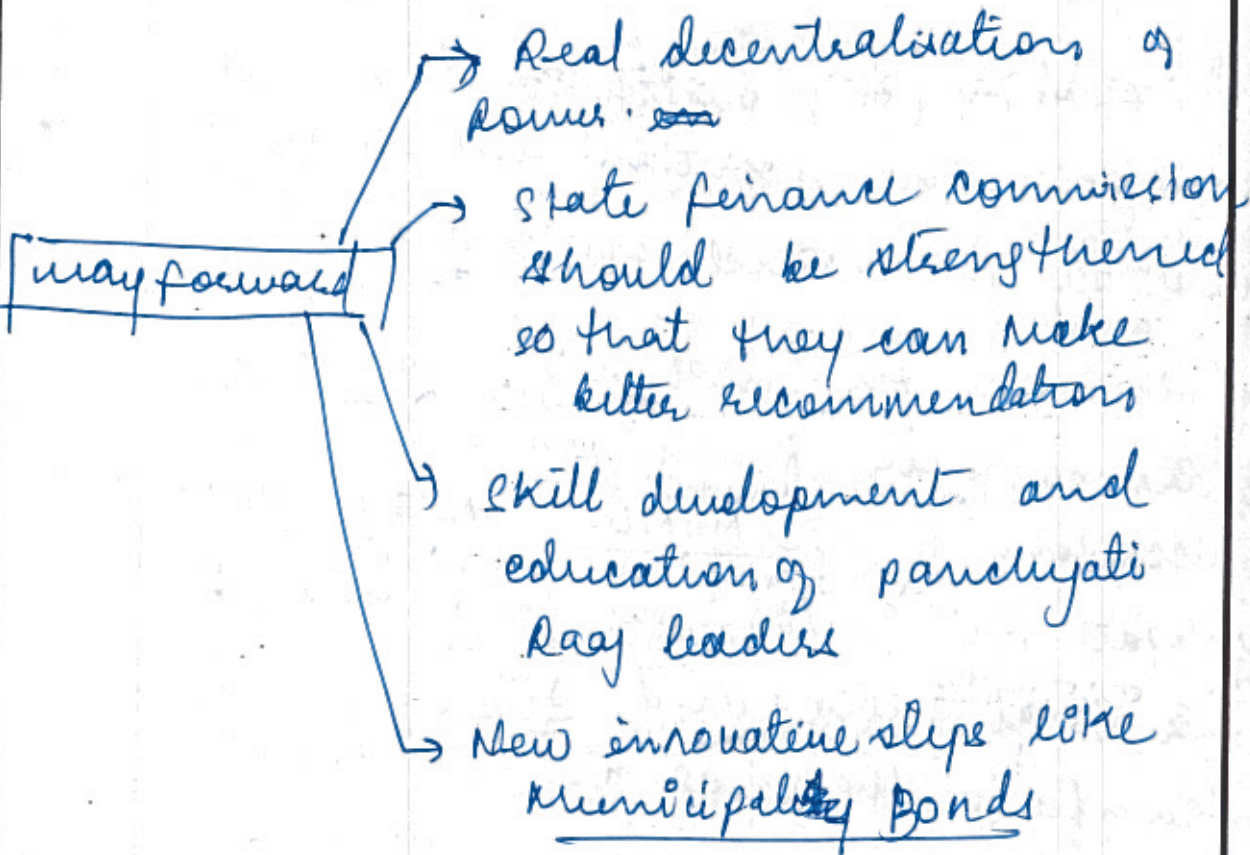 Real decentralisation of
Power.
way forward
State finance commission
should be strengthened
so that they can make
better recommendations
Skill development and
education of panchyati
Raaj leaders
New innovative steps like
Municipality Bonds